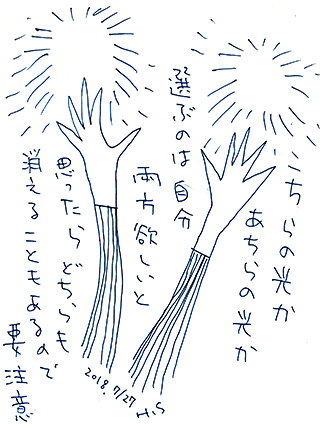 こちらの光か
あちらの光か
選ぶのは自分
両方欲しいと
思ったらどちらも
消えることもあるので
要注意
2018.7/27
H.S